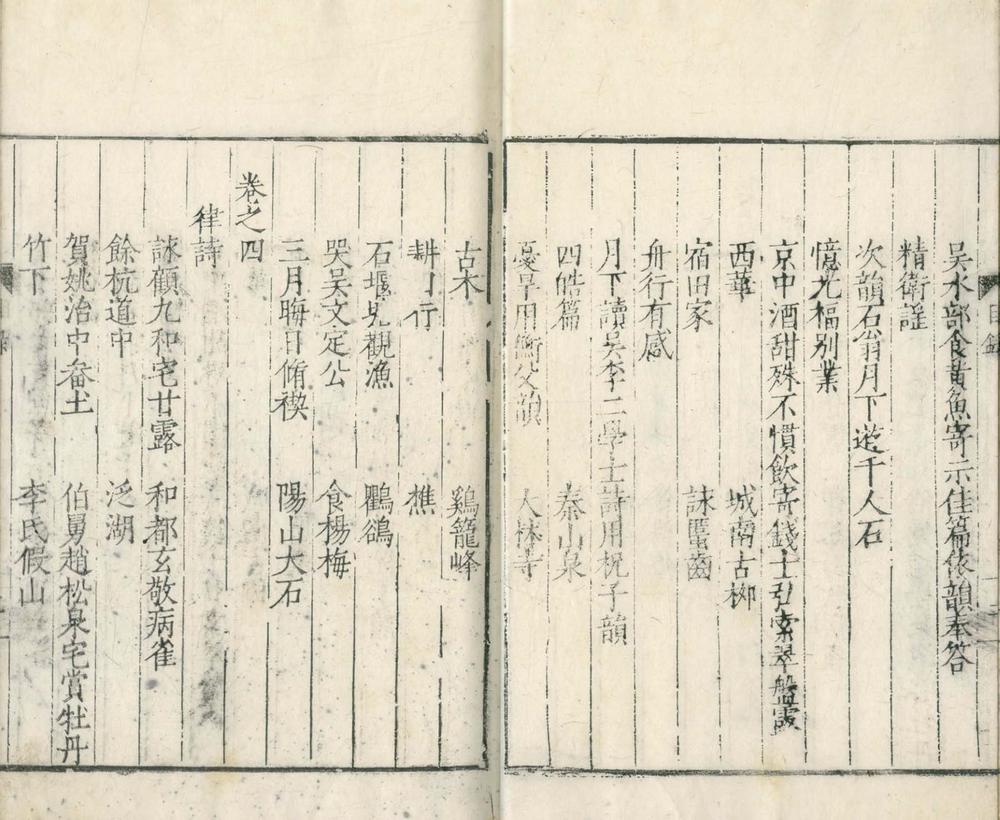 吳水部食黃魚寄示佳篇依韻奉答
精衛謡
次韻石翁月下遊千人石
憶光福别業
京中酒甜殊不慣飲寄錢士弘索翠盤露
西華　城南古柳
宿田家　詠齾齒
舟行有感
月下讀吳李二學士詩用祝子韻
四皓篇　泰山泉
憂旱用衡父韻　大林寺
古木　鷄籠峰
耕行　樵
石堰先觀漁　鸜鵒
哭吳文定公　食楊梅
三月晦日脩禊　陽山大石
卷之四
律詩
詠顧九和宅甘露　和都玄敬病雀
餘杭道中　泛湖
賀姚治中畚土　伯舅趙松泉宅賞牡丹
竹下　李氏假山
目錄